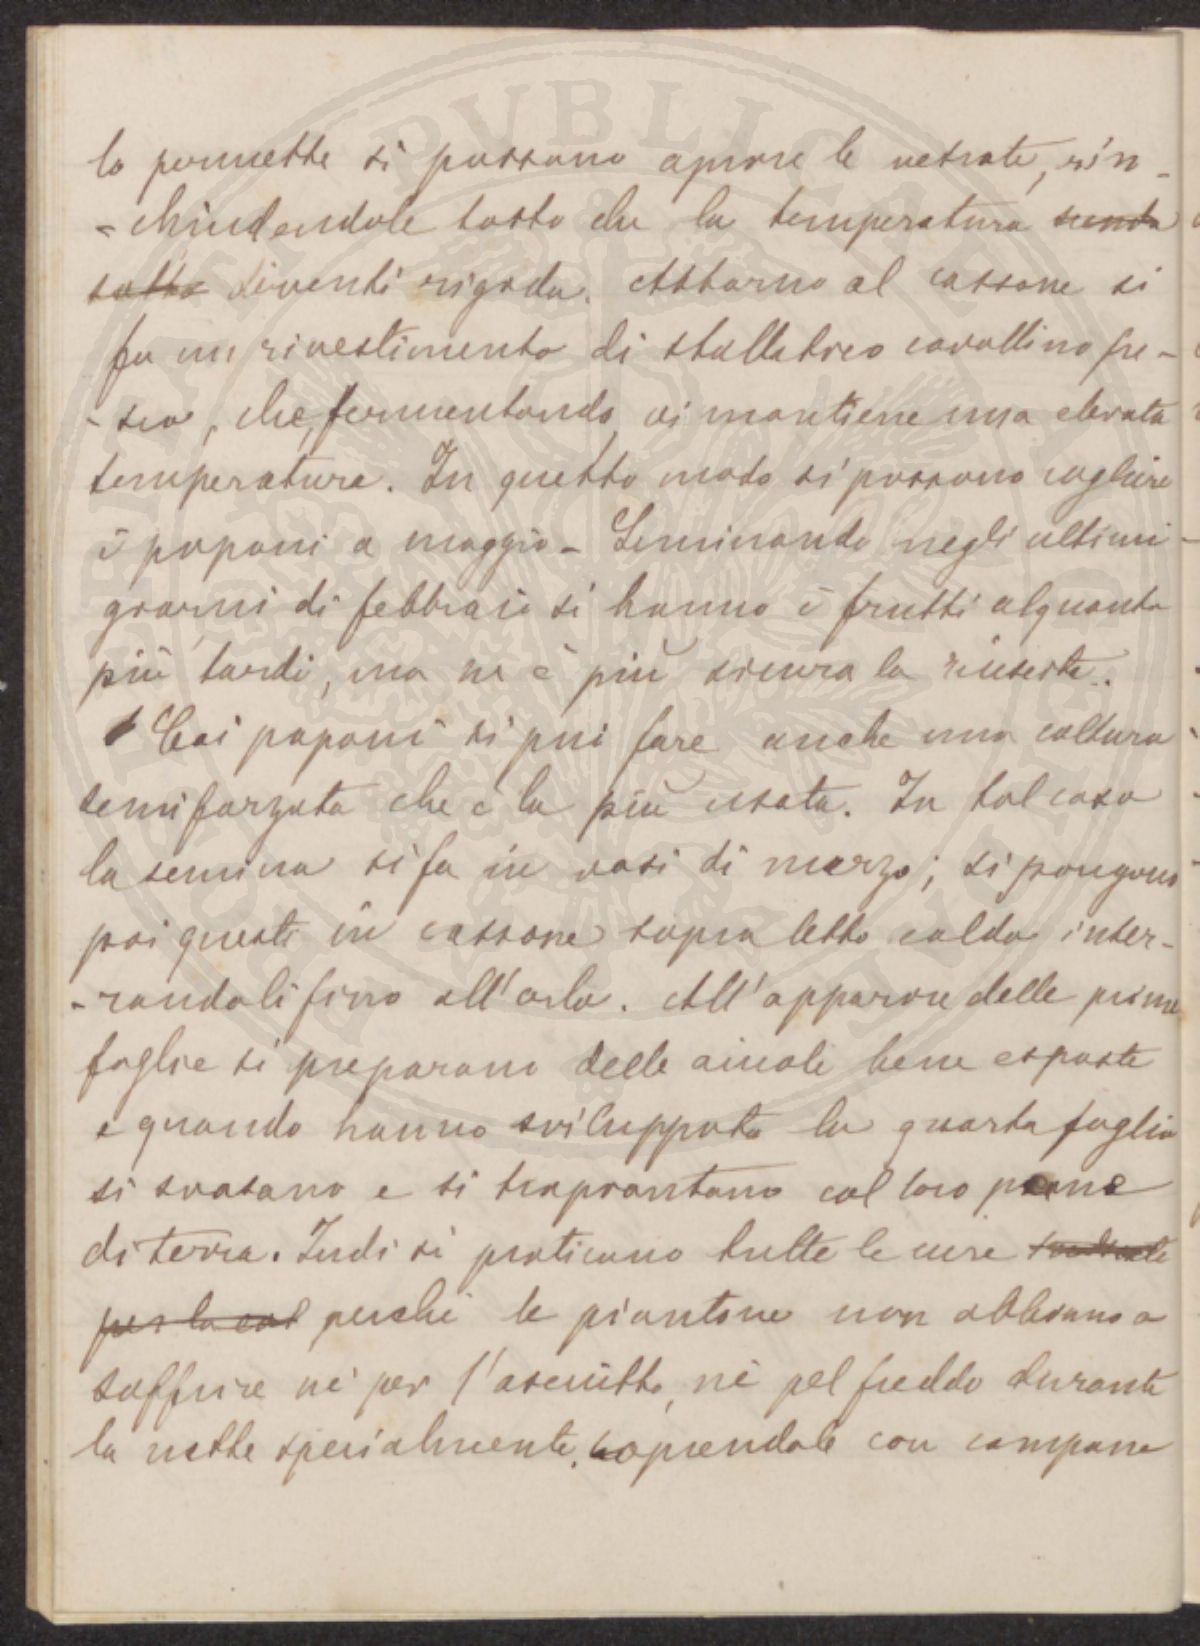 lo permette si possono aprire le vetrate, rin-
-chiudendole tosto che la temperatura scenda
sotto diventi rigida. Attorno al cassone si
fa un rivestimento di stallatico cavallino fre-
-sco, che, fermentando, vi mantiene una elevata
temperatura. In questo modo si possono cogliere
i poponi a maggio - Seminando negli ultimi
giorni di febbraio si hanno i frutti alquanto
più tardi, ma ne è più sicura la riuscita.
Coi poponi si può fare anche una coltura
semiforzata che è la più usata. In tal caso
la semina si fa in vasi di marzo; si pongono
poi questi in cassone sopra letto caldo inter-
-randoli fino all'orlo. All'apparire delle prime
foglie si preparano delle aiuole bene esposte
e quando hanno sviluppato la quarta foglia
si svasano e si trapiantano col loro pane
di terra. Indi si praticano tutte le cure
per la col perchè le piantine non abbiano a
soffrire nè per l'asciutto, nè pel freddo durante
la notte specialmente, coprendole con campane
PVBLICAE